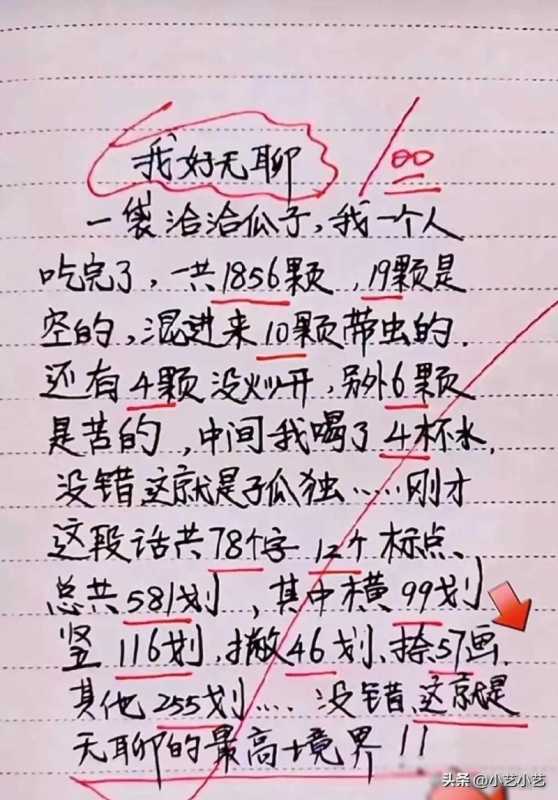 我好无聊
100
一袋洽洽瓜子,我一个人
吃完了,一共1856颗,19颗是
空的,混进来10颗带虫的.
还有4颗没炒开,另外6颗
是苦的,中间我喝了4杯水,
没错,这就是孤独……刚才
这段话共78个字12个标点、
总共581划,其中横99划
竖116划,撇46划、捺57画.
其他255划……没错,这就是
无聊的最高境界!!
头条 @小艺小艺